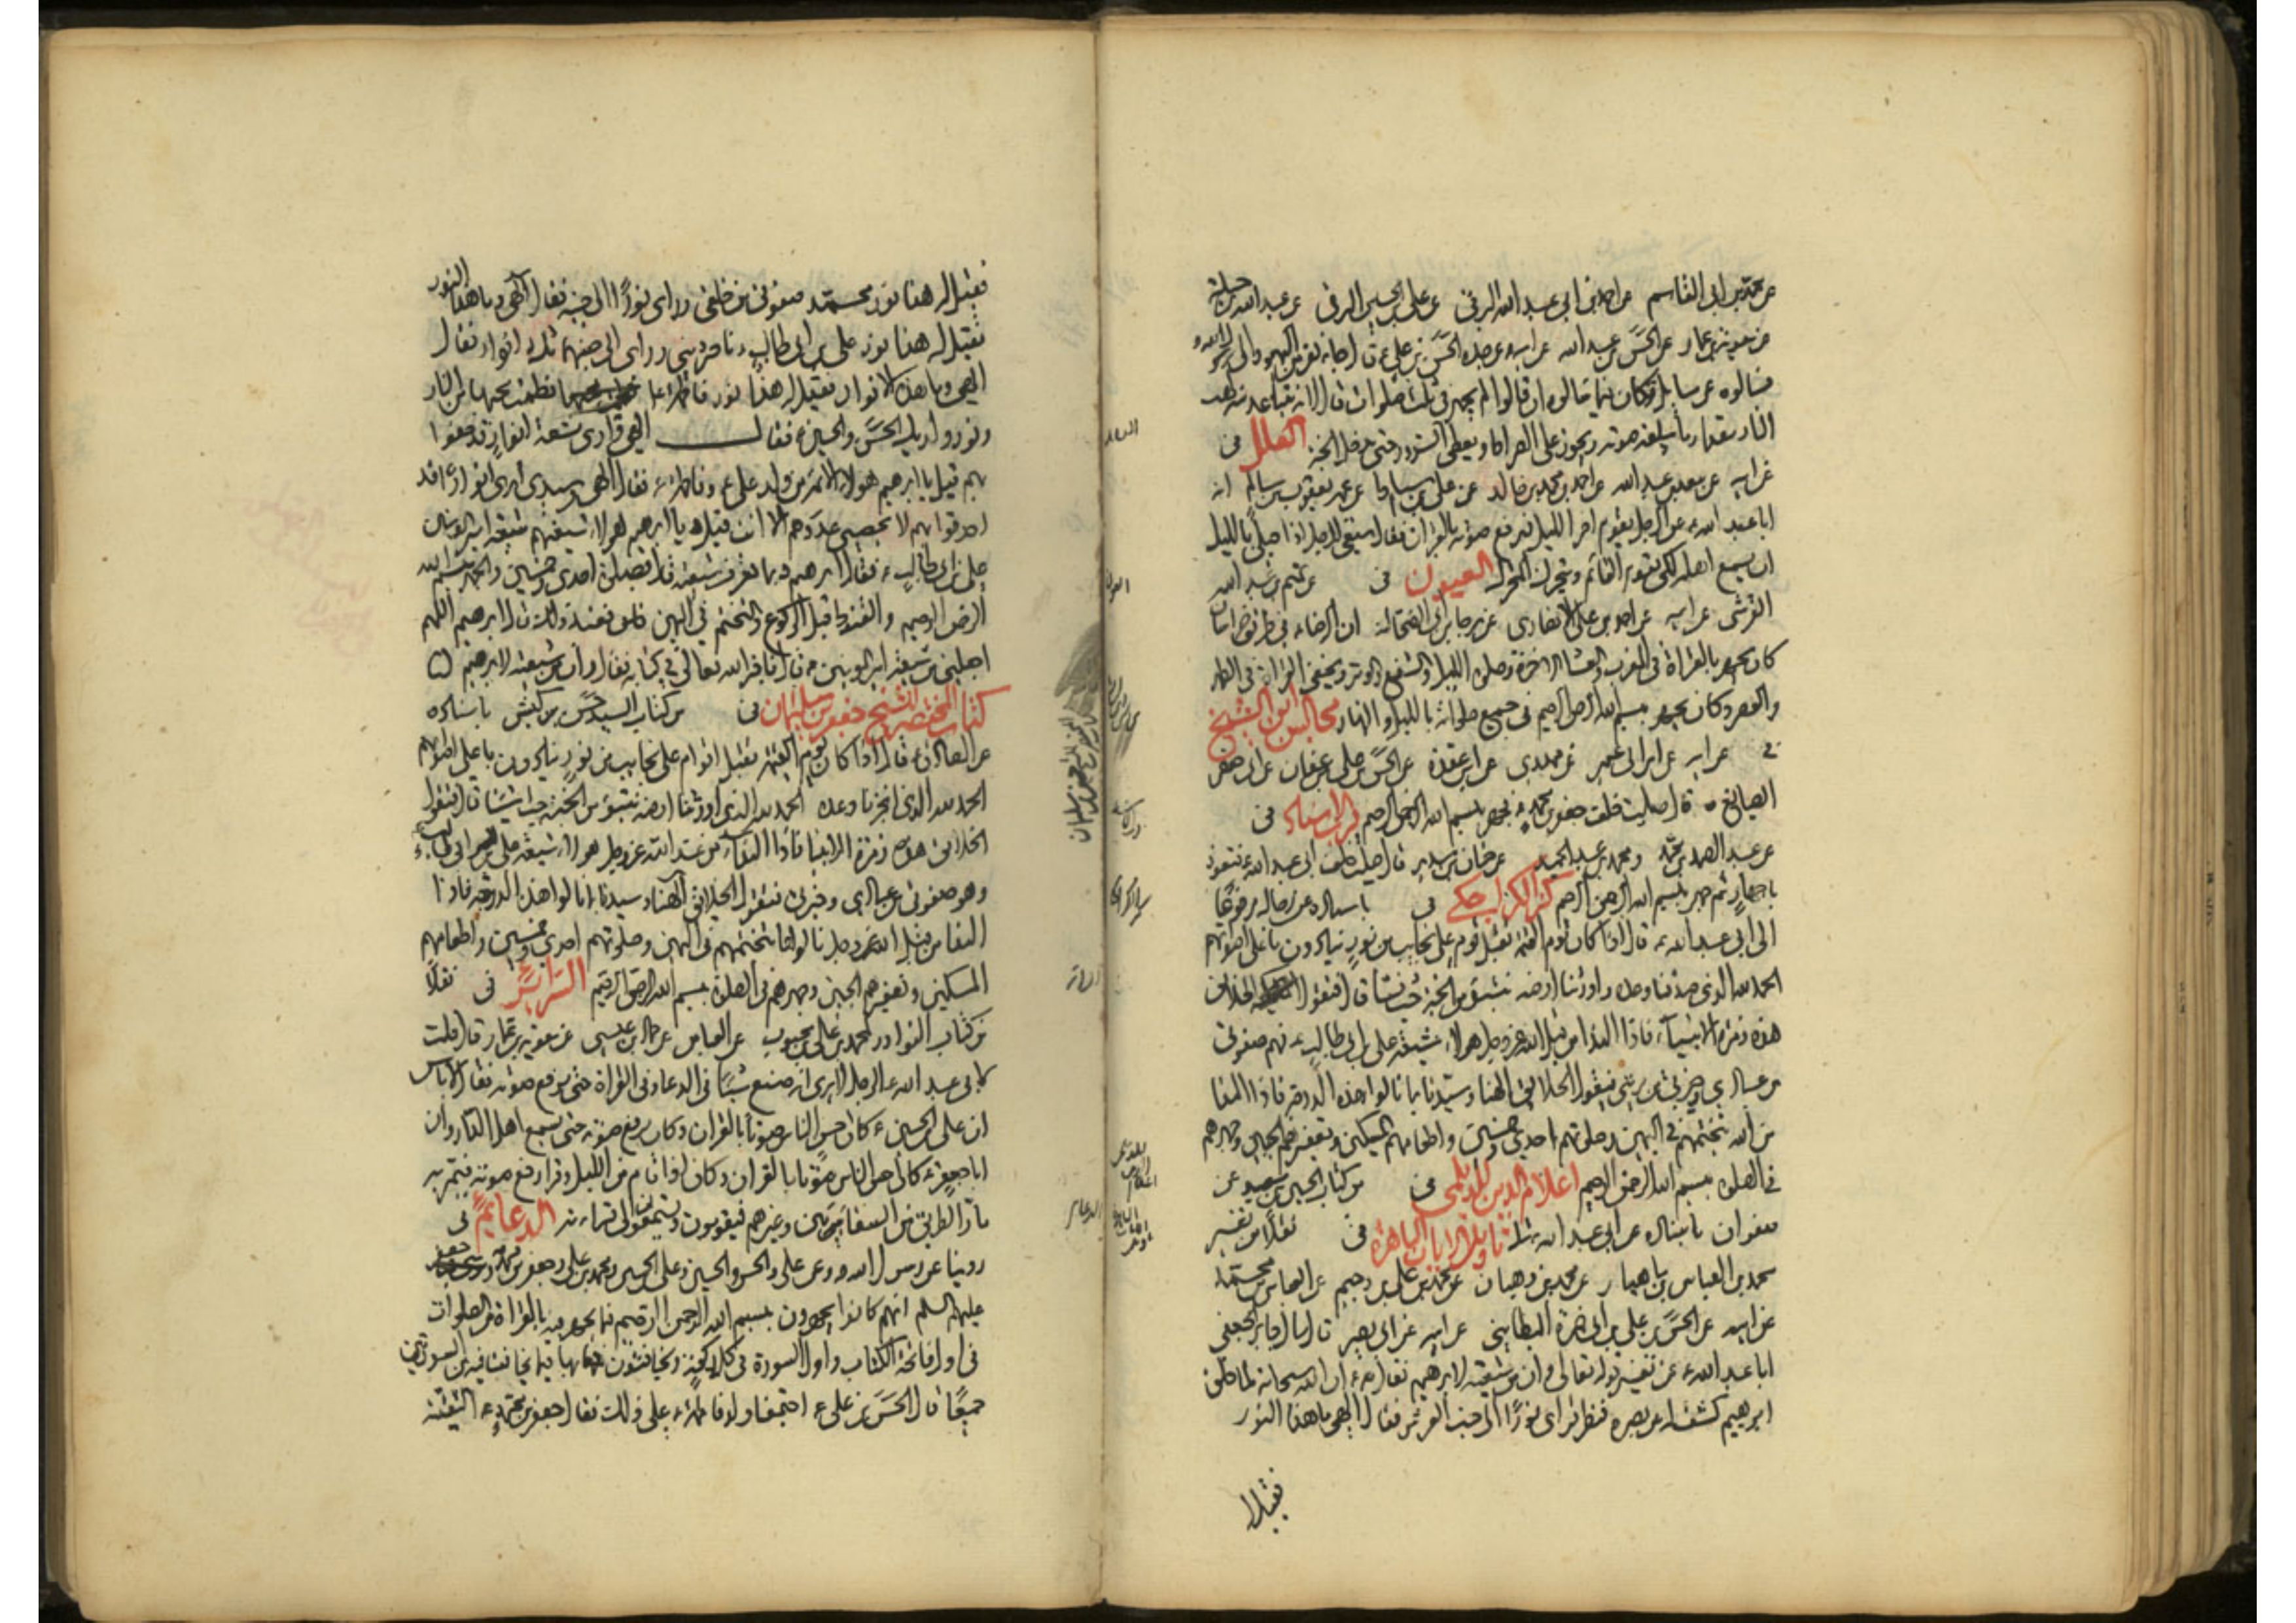 عن محمد بن ابى القاسم عن احمد بن ابى عبد الله البرقى عن على بن الحسين البرقى عن عبد الله بن جبلة
عن معوية بن عمار عن الحسن بن عبد الله عن ابيه عن جده الحسن بن على ع قال جاء نفر من اليهود الى رسول الله
فسالوه عن مسايل فكان فيما سالوه ان قالوا لم يجهر فى ثلث صلوات قال لانه يتباعد منه لهب
النار مقدار ما يبلغه صوته ويجوز على الصراط ويعطى السرور حتى يدخل الجنة العلل فى
عن ابيه عن سعد بن عبد الله عن احمد بن محمد بن خالد عن على بن اسباط عن عمه يعقوب بن سالم انه
ابا عبد الله ع عن الرجل يقوم اخر الليل فيرفع صوته بالقران فقال ينبغى للرجل اذا صلى بالليل
ان يسمع اهله لكى يقوم القائم ويتحرك المتحرك العيون فى عن تميم بن عبد الله
القرشى عن ابيه عن احمد بن على الانصارى عن رجا بن ابى الضحاك ان الرضا ع فى طريق خراسان
كان يجهر بالقراة فى المغرب والعشا الاخرة وصلوة الليل والشفع والوتر ويخفى القراة فى الظهر
والعصر وكان يجهر ببسم الله الرحمن الرحيم فى جميع صلواته بالليل والنهار مجالس ابن الشيخ
فى عن ابيه عن ابى عمير عن مهدى عن ابن عقدة عن الحسن بن على بن عفان عن ابى حفص
الصائغ قال صليت خلف جعفر بن محمد ع فجهر ببسم الله الرحمن الرحيم قرب الاسناد فى
عن عبد الصمد بن محمد ومحمد بن عبد الحميد عن حنان بن سدير قال صليت خلف ابى عبد الله ع فتعوذ
باجهار ثم جهر ببسم الله الرحمن الرحيم كنز الكراجكى فى باسناده عن رجاله مرفوعا
الى ابى عبد الله ع قال اذا كان يوم القيمة تقبل قوم على نجايب من نور ينادون باعلى اصواتهم
الحمد لله الذى صدقنا وعده واورثنا ارضه نتبوء من الجنة حيث نشا قال فتقول الخلائق
هذه زمرة الانبياء فاذا النداء من قبل الله عز وجل هولاء شيعة على بن ابى طالب ع فهم صفوتى
من عبادى وخيرتى من بريتى فيقول الخلائق الهنا وسيدنا بما نالوا هذه الدرجة فاذا الندا
من الله بتختمهم فى اليمين وصلوتهم احدى وخمسين واطعامهم المسكين وتعفيرهم الجبين وجهرهم
فى الصلوة ببسم الله الرحمن الرحيم اعلام الدين للديلمى فى من كتاب الحسين بن سعيد عن
صفوان باسناده عن ابى عبد الله ع مثله تاويل الايات الباهرة فى نقلا من تفسير
محمد بن العباس بن ماهيار عن محمد بن وهبان عن محمد بن على بن رحيم عن العباس بن محمد
عن ابيه عن الحسن بن على بن ابى حمزة البطاينى عن ابيه عن ابى بصير قال سال جابر الجعفى
ابا عبد الله ع عن تفسير قوله تعالى وان من شيعته لابرهيم فقال ع ان الله سبحانه لما خلق
ابرهيم كشف له عن بصره فنظر فراى نورا الى جنب العرش فقال الهى ما هذا النور
فقيل
فقيل له هذا نور محمد صفوتى من خلقى وراى نورا الى جنبه فقال الهى وما هذا النور
فقيل له هذا نور على بن ابى طالب ناصر دينى وراى الى جنبهما ثلاثة انوار فقال
الهى وما هذه الانوار فقيل له هذا نور فاطمة فطمت محبيها من النار
ونور ولديها الحسن والحسين ع فقال الهى وارى تسعة انوار قد حفوا
بهم قيل يا ابرهيم هولاء الائمة من ولد على ع وفاطمة ع فقال الهى وسيدى ارى انوارا قد
احدقوا بهم لا يحصى عددهم الا انت قيل يا ابرهيم هولاء شيعتهم شيعة امير المومنين
على بن ابى طالب ع فقال ابرهيم وبما تعرف شيعته قال بصلوة احدى وخمسين والجهر ببسم الله
الرحمن الرحيم والقنوت قبل الركوع والتختم فى اليمين فعند ذلك قال ابرهيم اللهم
اجعلنى من شيعة امير المومنين ع قال فاخبر الله تعالى فى كتابه فقال وان من شيعته لابرهيم
كتاب المختصر للشيخ حسن بن سليمان فى من كتاب السيد حسن بن كبش باسناده
عن الصادق ع قال اذا كان يوم القيمة تقبل اقوام على نجايب من نور ينادون باعلى اصواتهم
الحمد لله الذى انجزنا وعده الحمد لله الذى اورثنا ارضه نتبوء من الجنة حيث نشا قال فتقول
الخلائق هذه زمرة الانبيا فاذا النداء من عند الله عز وجل هولاء شيعة على بن ابى طالب ع
وهو صفوتى من عبادى وخيرتى فتقول الخلائق الهنا وسيدنا بما نالوا هذه الدرجة فاذا
الندا من قبل الله عز وجل نالوها بتختمهم فى اليمين وصلوتهم احدى وخمسين واطعامهم
المسكين وتعفيرهم الجبين وجهرهم فى الصلوة ببسم الله الرحمن الرحيم السرائر فى نقلا
من كتاب النوادر لمحمد بن على بن محبوب عن العباس عن حماد بن عيسى عن معوية بن عمار قال قلت
لابى عبد الله ع الرجل لا يرى انه صنع شيئا فى الدعا وفى القراة حتى يرفع صوته فقال لا باس
ان على بن الحسين ع كان احسن الناس صوتا بالقران وكان يرفع صوته حتى يسمع اهل الدار وان
ابا جعفر ع كان احسن الناس صوتا بالقران وكان اذا قام من الليل وقرا رفع صوته فيمر به
مار الطريق من السقائين وغيرهم فيقومون ويستمعون الى قرائته الدعائم فى
روينا عن رسول الله وعن على والحسن والحسين وعلى بن الحسين ومحمد بن على وجعفر بن محمد
عليهم السلم انهم كانوا يجهرون ببسم الله الرحمن الرحيم فيما يجهر فيه بالقراة من الصلوات
فى اول فاتحة الكتاب واول السورة فى كل ركعة ويخافتون بها فيما يخافت فيه من السورتين
جميعا قال الحسن بن على ع اجتمعنا ولد فاطمة ع على ذلك فقال جعفر بن محمد ع التقية